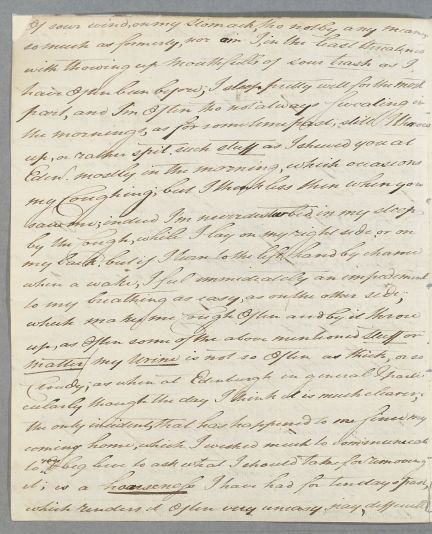 of sour wind, on my stomach, tho not by any means
so much as formerly, nor am I, in the least
with throwing up mouthfulls of sour trash as I
have often been before; I sleep pretty well for the most
part, and I'm often tho not always sweating in
the mornings, as for some time past, still I throw
up, or rather spit such stuff as I shewed you at
Edenr. mostly in the morning, which occasions
my Coughing, but I think less then when you
saw me, indeed I'm never disturbed in my sleep
by the cough, while I lay on my right side or on
my back but if I turn to the left hand by chance
when a wake, I feel immediately an impediment
to my breathing as easy, as on the other side;
which makes me cough often and by it throw
up, as often some of the above mentioned stuff or
matter, my Urine is not so often as thick, or so
Cloudy, as when at Edenburgh in general, Parti:
cularly though the day I think it is much clearer,
the only incident, that has happened to me since my
coming home, which I wished much to communicate
to you & beg live to ask what I should take for removing
it; is a hoarseness I have had for ten days past,
which renders it often very uneasy, nay, difficult